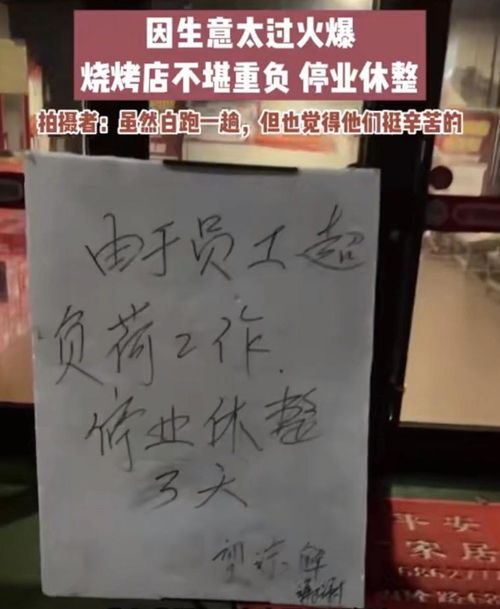 因生意太过火爆
烧烤店不堪重负 停业休整
拍摄者：虽然白跑一趟，但也觉得他们挺辛苦的
由于员工超
负荷工作.
停业休整
3天
望谅解
谢谢
平安
家居